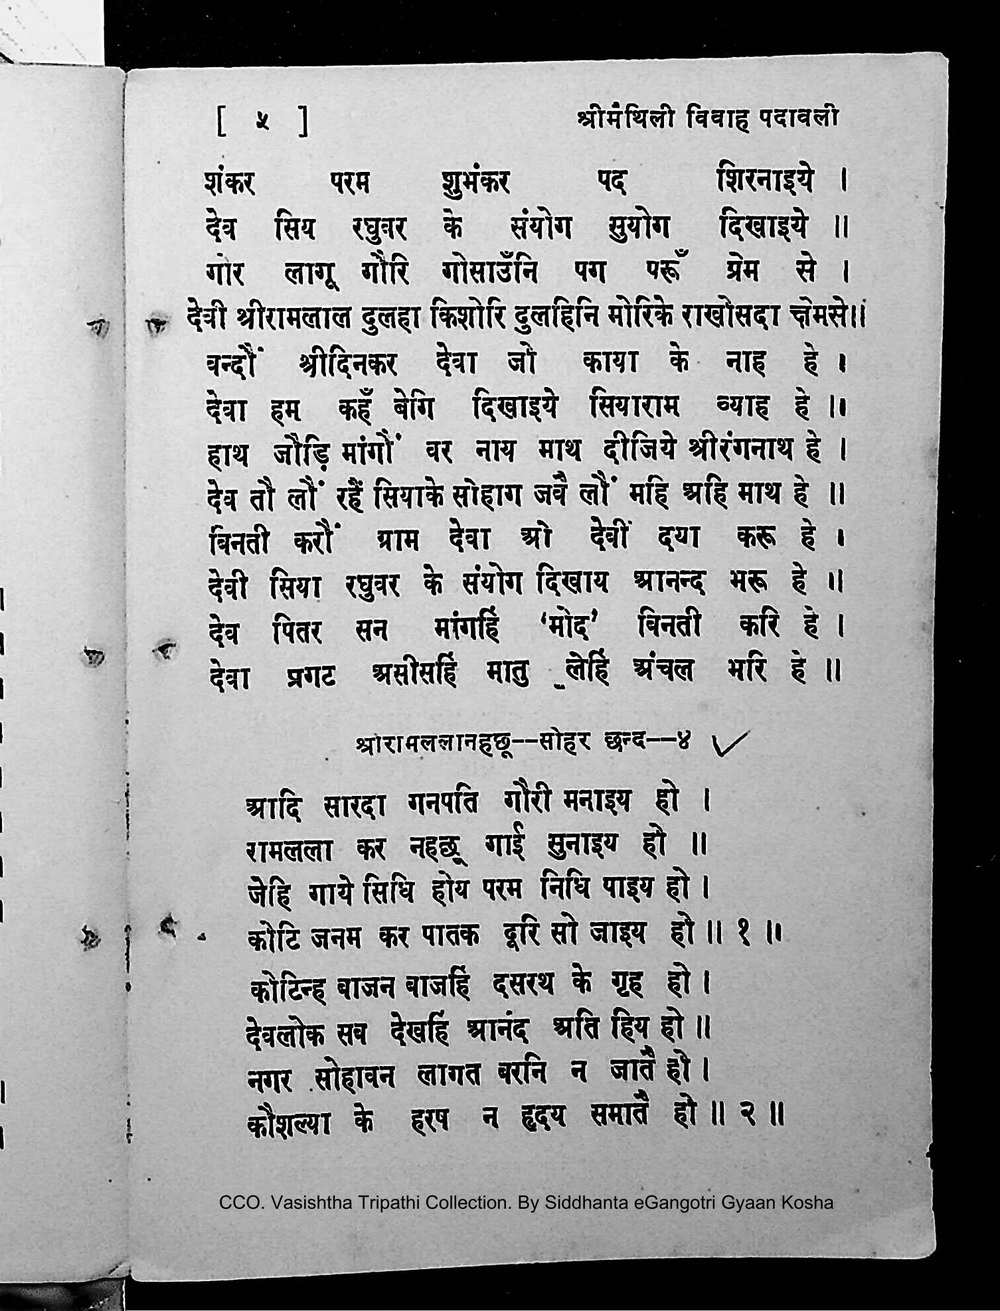 [ ५ ] श्रीमंथिली विवाह पदावली
शंकर परम शुभंकर पद शिरनाइये ।
देव सिय रघुवर के संयोग सुयोग दिखाइये ॥
गोर लागू गौरि गोसाउँनि पग परूँ प्रेम से ।
देवी श्रीरामलाल दुलहा किशोरि दुलहिनि मोरिके राखोसदा क्षेमसे॥
वन्दौं श्रीदिनकर देवा जो काया के नाह हे ।
देवा हम कहँ बेगि दिखाइये सियाराम व्याह हे ॥
हाथ जौड़ि मांगौं वर नाय माथ दीजिये श्रीरंगनाथ हे ।
देव तौ लौं रहैं सियाके सोहाग जवै लौं महि अहि माथ हे ॥
बिनती करौं ग्राम देवा ओ देवीं दया करू हे ।
देवी सिया रघुवर के संयोग दिखाय आनन्द भरू हे ॥
देव पितर सन मांगहिं ‘मोद’ विनती करि हे ।
देवा प्रगट असीसहिं मातु लेहिं अंचल भरि हे ॥
श्रीरामललानहछू--सोहर छन्द--४
आदि सारदा गनपति गौरी मनाइय हो ।
रामलला कर नहछू गाई सुनाइय हो ॥
जेहि गाये सिधि होय परम निधि पाइय हो ।
कोटि जनम कर पातक दूरि सो जाइय हो ॥ १ ॥
कोटिन्ह बाजन बाजहिं दसरथ के गृह हो ।
देवलोक सब देखहिं आनंद अति हिय हो ॥
नगर सोहावन लागत बरनि न जातै हो ।
कौशल्या के हरष न हृदय समातै हो ॥ २ ॥
CCO. Vasishtha Tripathi Collection. By Siddhanta eGangotri Gyaan Kosha